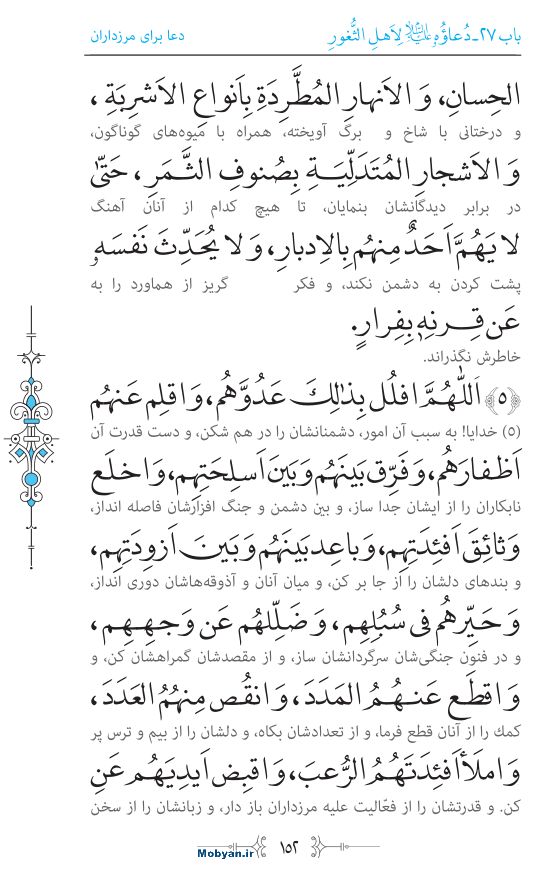 باب ۲۷ـ دُعاؤُهُ لِاَهلِ الثُّغورِ
دعا برای مرزداران
الحِسانِ، وَ الاَنهارِ المُطَّرِدَةِ بِاَنواعِ الاَشرِبَةِ ،
و درختانی با شاخ و برگ آویخته، همراه با میوه‌های گوناگون،
وَ الاَشجارِ المُتَدَلِّيَةِ بِصُنوفِ الثَّمَرِ ، حَتّىٰ
در برابر دیدگانشان بنمایان، تا هیچ کدام از آنان آهنگ
لا يَهُمَّ اَحَدٌ مِنهُم بِالاِدبارِ، وَ لا يُحَدِّثَ نَفسَهُ
پشت کردن به دشمن نکند، و فکر گریز از هماورد را به
عَن قِرنِهِ بِفِرارٍ.
خاطرش نگذراند.
﴿۵﴾ اَللّٰهُمَّ افلُل بِذٰلِكَ عَدُوَّهُم، وَ اقلِم عَنهُم
(۵) خدایا! به سبب آن امور، دشمنانشان را در هم شکن، و دست قدرت آن
اَظفارَهُم، وَ فَرِّق بَينَهُم وَ بَينَ اَسلِحَتِهِم، وَ اخلَع
نابکاران را از ایشان جدا ساز، و بین دشمن و جنگ افزارشان فاصله انداز،
وَثائِقَ اَفئِدَتِهِم، وَ باعِد بَينَهُم وَ بَينَ اَزوِدَتِهِم،
و بندهای دلشان را از جا بر کن، و میان آنان و آذوقه‌هاشان دوری انداز،
وَ حَيِّرهُم فی سُبُلِهِم، وَ ضَلِّلهُم عَن وَجهِهِم ،
و در فنون جنگی‌شان سرگردانشان ساز، و از مقصدشان گمراهشان کن، و
وَ اقطَع عَنهُمُ المَدَدَ، وَ انقُص مِنهُمُ العَدَدَ،
کمك را از آنان قطع فرما، و از تعدادشان بکاه، و دلشان را از بیم و ترس پر
وَ املَأ اَفئِدَتَهُمُ الرُّعبَ، وَ اقبِض اَيدِيَهُم عَنِ
کن. و قدرتشان را از فعّالیت علیه مرزداران باز دار، و زبانشان را از سخن
۱۵۲
Mobyan.ir